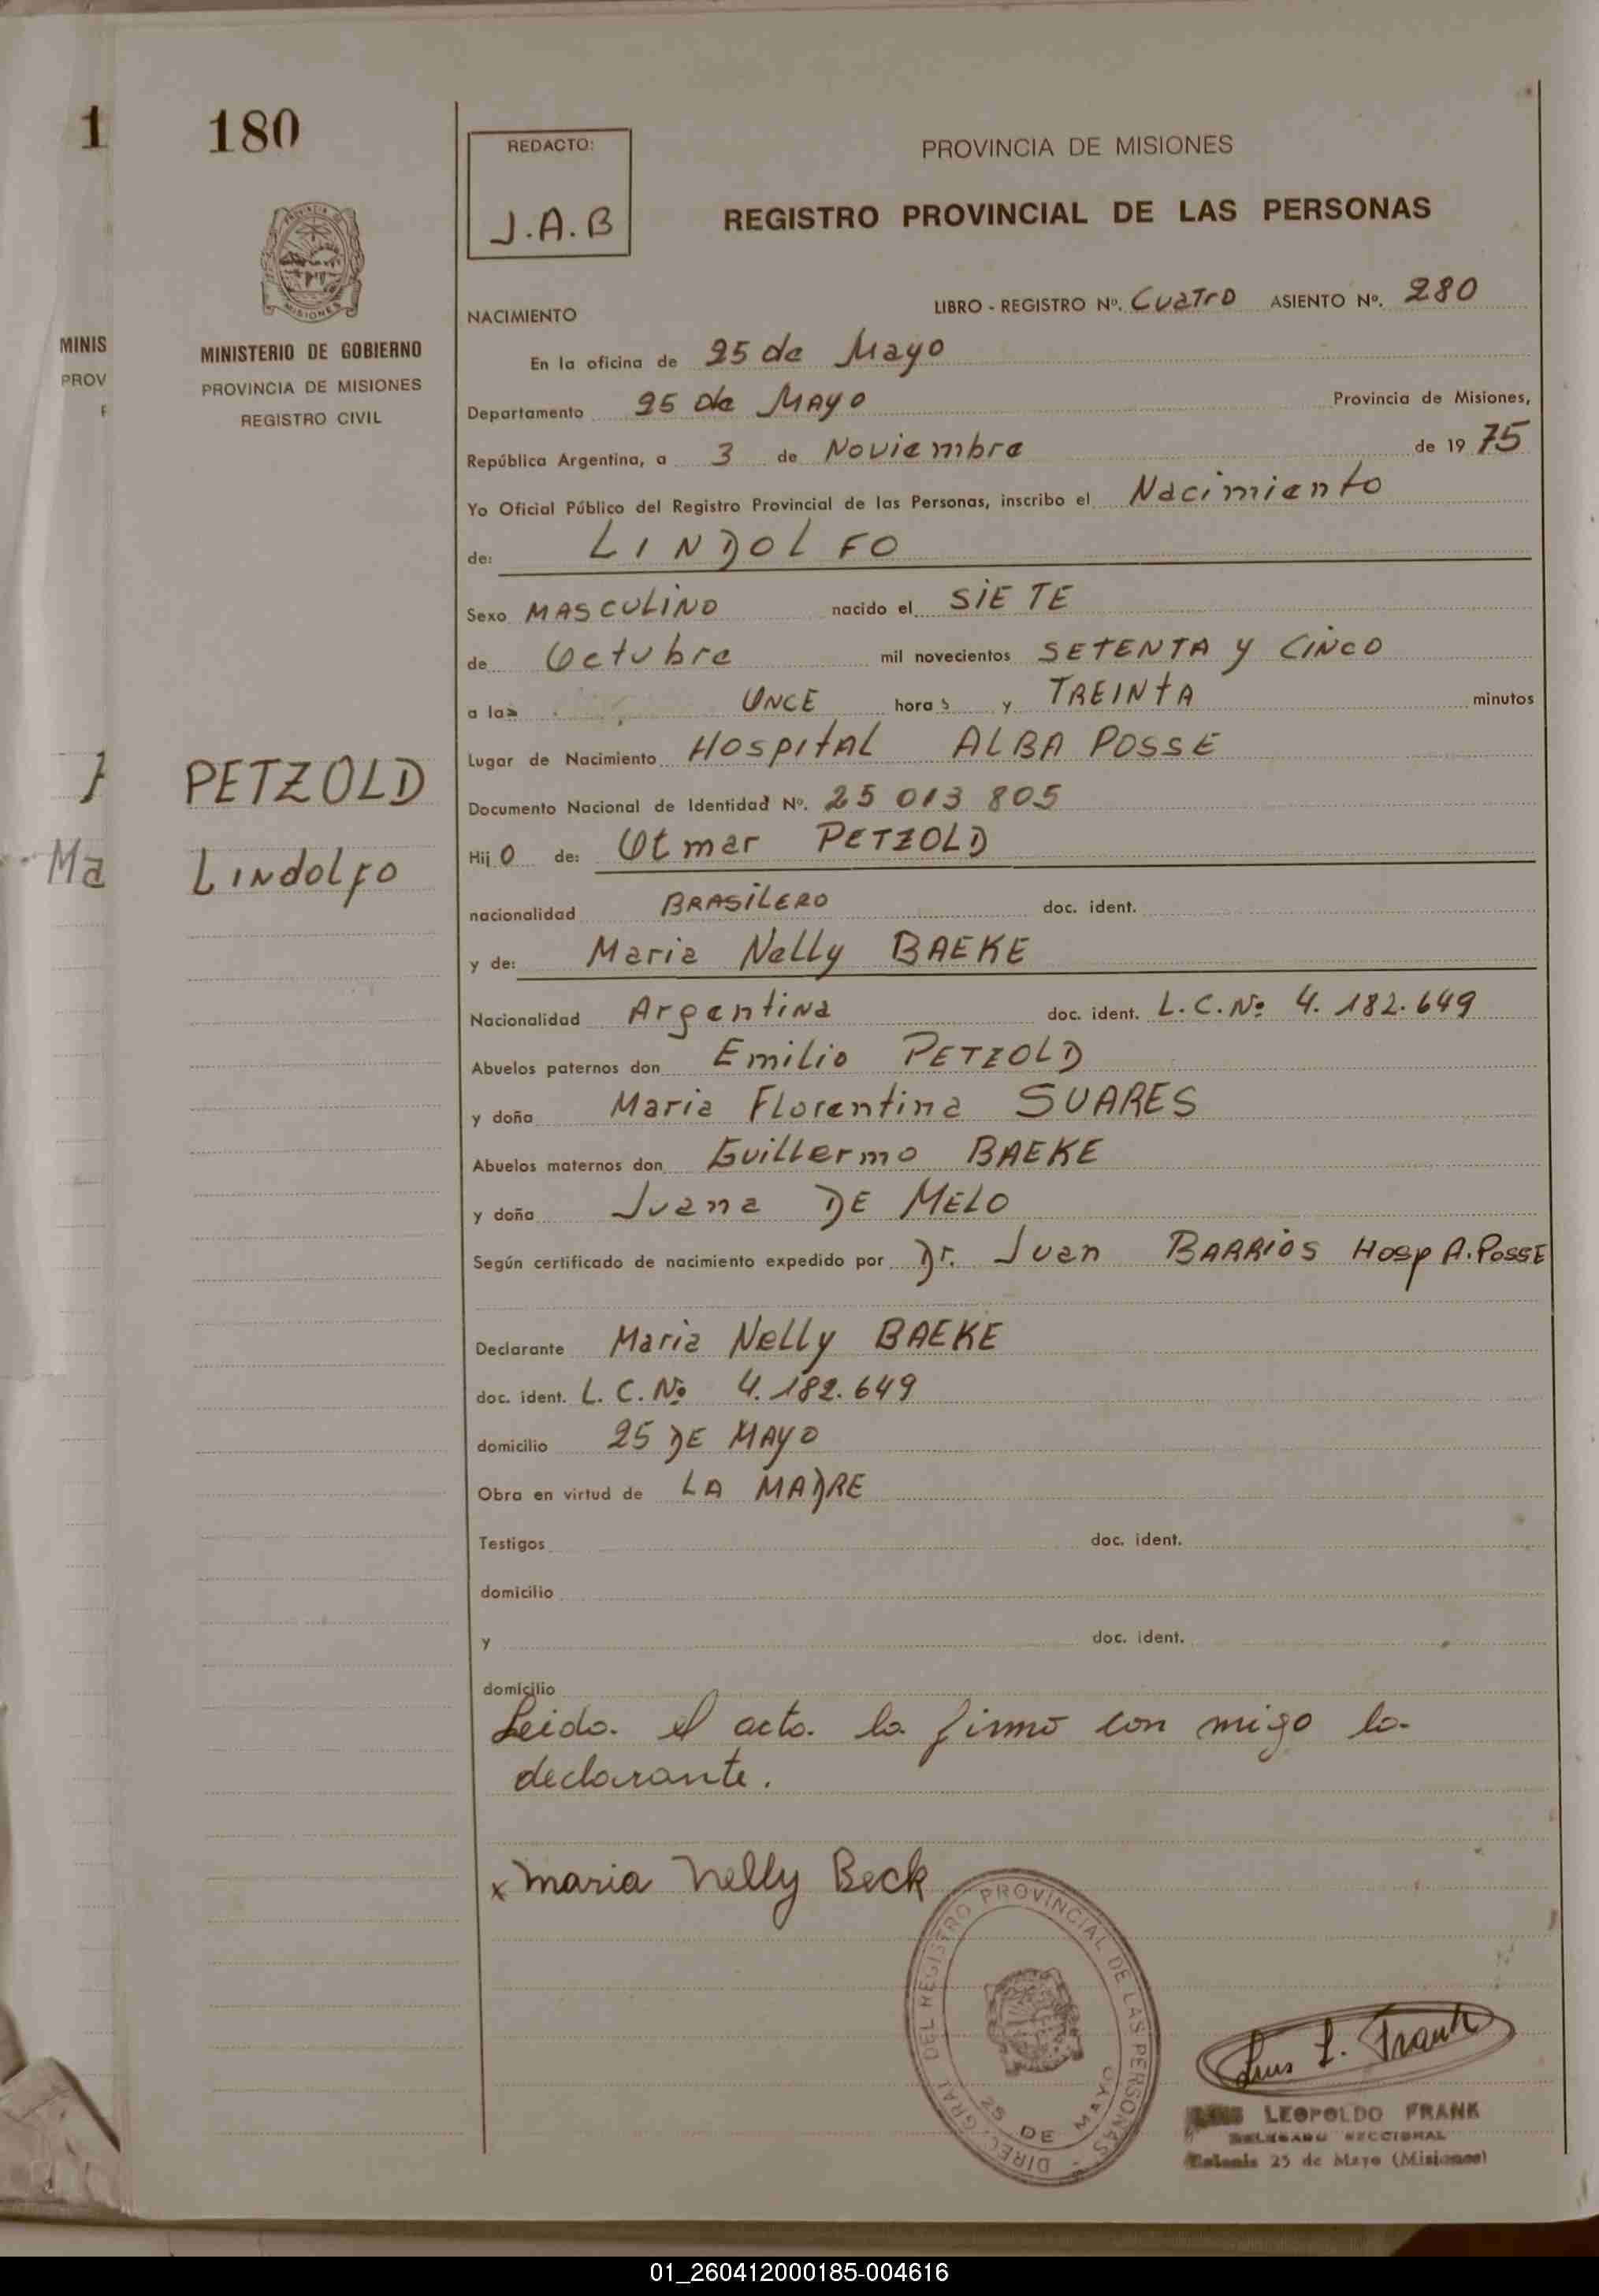 1
MINIS
PROV
Ma
180
PROVINCIA DE
MISIONES
MINISTERIO DE GOBIERNO
PROVINCIA DE MISIONES
REGISTRO CIVIL
PETZOLD
Lindolfo
REDACTO:
J.A.B
PROVINCIA DE MISIONES
REGISTRO PROVINCIAL DE LAS PERSONAS
NACIMIENTO LIBRO - REGISTRO Nº. Cuatro ASIENTO Nº. 280
En la oficina de 25 de Mayo
Departamento 25 de Mayo Provincia de Misiones,
República Argentina, a 3 de Noviembre de 19 75
Yo Oficial Público del Registro Provincial de las Personas, inscribo el Nacimiento
de: LINDOLFO
Sexo MASCULINO nacido el SIETE
de Octubre mil novecientos SETENTA y CINCO
a las ONCE horas y TREINTA minutos
Lugar de Nacimiento HOSPITAL ALBA POSSE
Documento Nacional de Identidad Nº. 25 013 805
Hijo de: Otmar PETZOLD
nacionalidad BRASILERO doc. ident.
y de: Maria Nelly BAEKE
Nacionalidad Argentina doc. ident. L.C.Nº 4.182.649
Abuelos paternos don Emilio PETZOLD
y doña Maria Florentina SUARES
Abuelos maternos don Guillermo BAEKE
y doña Juana DE MELO
Según certificado de nacimiento expedido por Dr. Juan BARRIOS Hosp A. POSSE
Declarante Maria Nelly BAEKE
doc. ident. L.C.Nº 4.182.649
domicilio 25 DE MAYO
Obra en virtud de LA MADRE
Testigos doc. ident.
domicilio
y doc. ident.
domicilio
Leida el acta la firmó con migo la
declarante.
x Maria Nelly Beck
DIREC. GRAL. DEL REGISTRO PROVINCIAL DE LAS PERSONAS
25 DE MAYO
Luis L. Frank
LUIS LEOPOLDO FRANK
DELEGADO SECCIONAL
Colonia 25 de Mayo (Misiones)
01_260412000185-004616